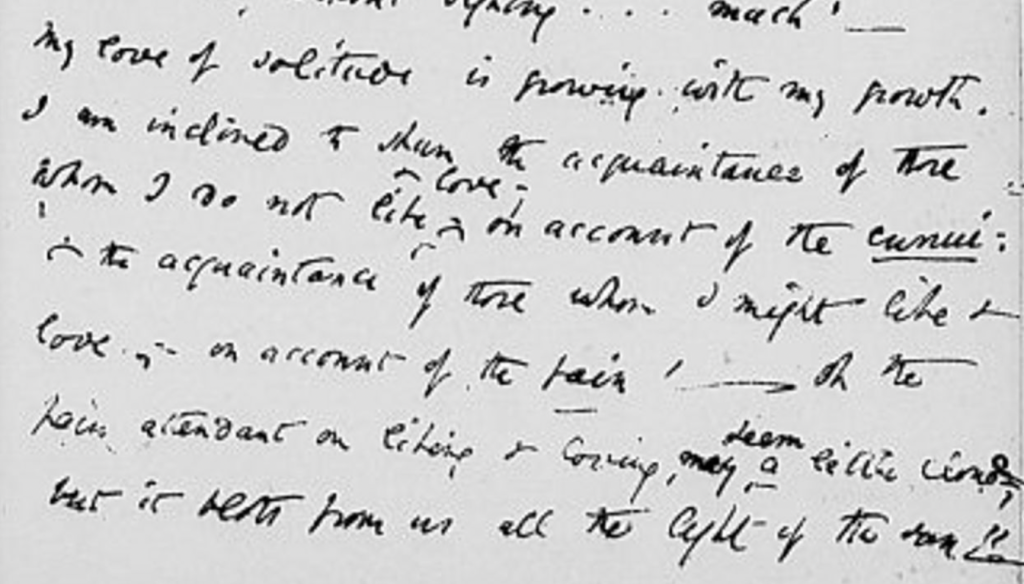 much!—
My love of solitude is growing with my growth.
I am inclined to shun the acquaintance of those
whom I do not like & love; on account of the ennui:
& the acquaintance of those whom I might like &
love – on account of the pain! — Oh the
pain attendant on liking & loving, may seem a little cloud,
but it blots from us all the light of the sun!!